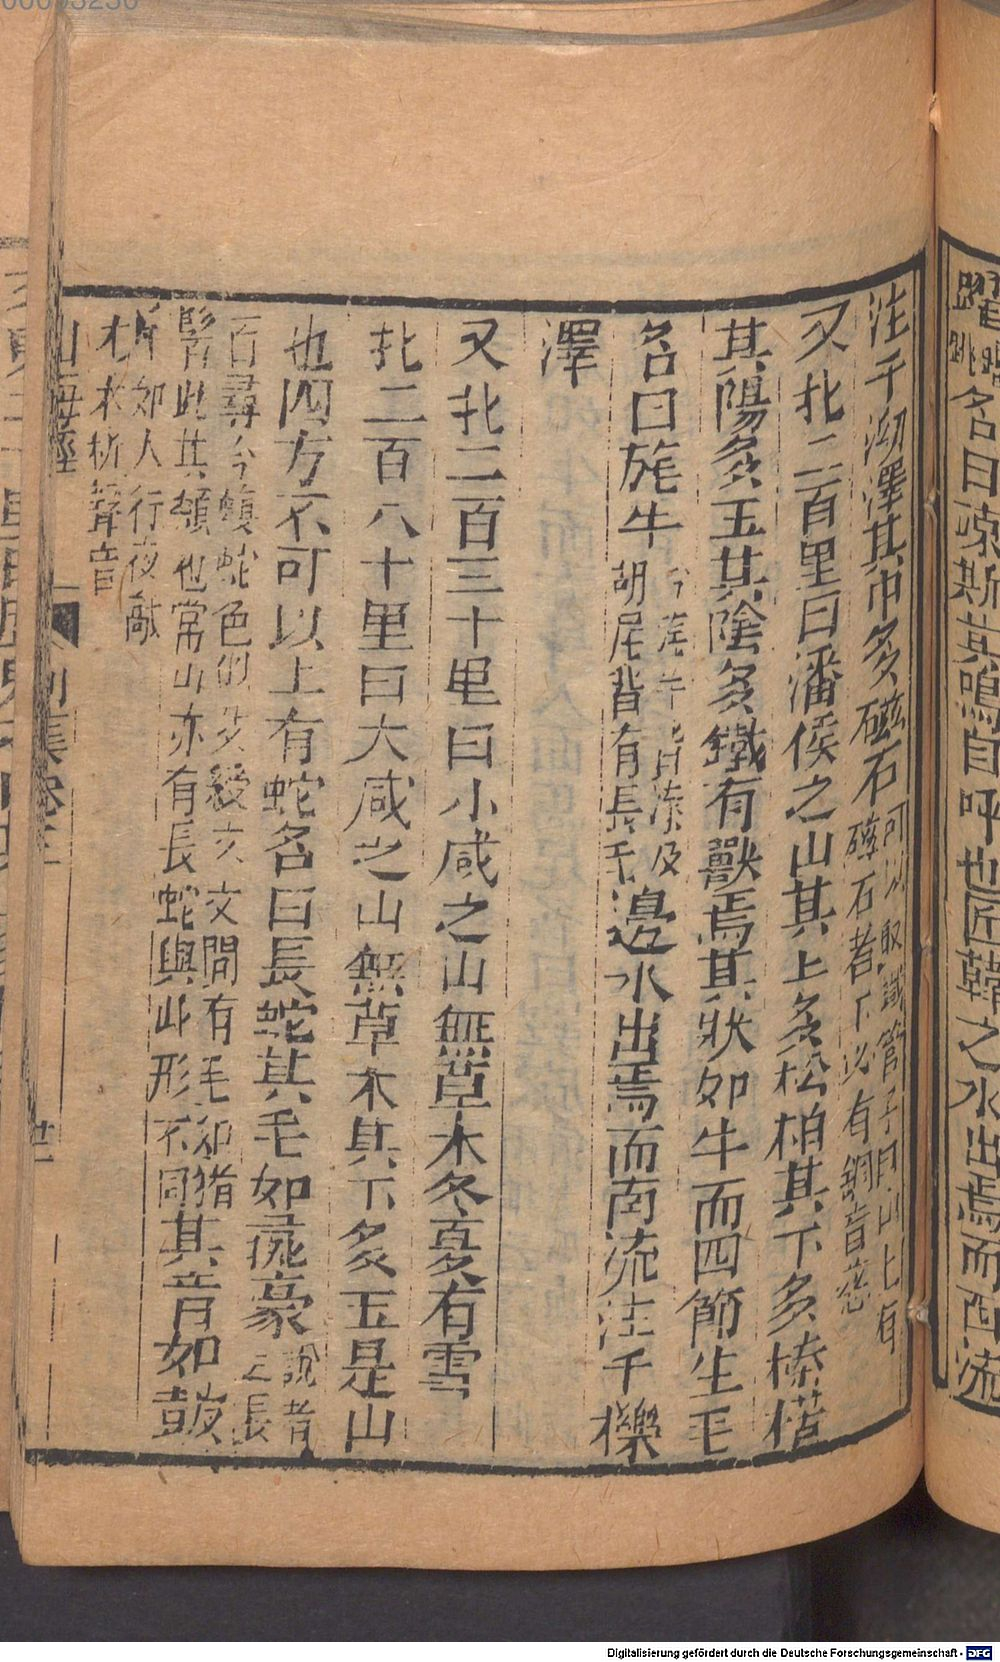 躍踔
跳名曰竦斯其鳴自呼也匠韓之水出焉而西流
注于泑澤其中多磁石可以取鐵管子曰山上有
磁石者下必有銅音慈
又北二百里曰潘侯之山其上多松柏其下多榛楛
其陽多玉其陰多鐵有獸焉其狀如牛而四節生毛
名曰旄牛今旄牛背膝及
胡尾皆有長毛邊水出焉而南流注于櫟
澤
又北二百三十里曰小咸之山無草木冬夏有雪
北二百八十里曰大咸之山無草木其下多玉是山
也四方不可以上有蛇名曰長蛇其毛如彘豪說者
云長
百尋今蝮蛇色似艾綬文文間有毛如猪
髯此其類也常山亦有長蛇與此形不同其音如鼓
柝如人行夜敲
木柝聲音
山海經 卷三 廿二
Digitalisierung gefördert durch die Deutsche Forschungsgemeinschaft - DFG